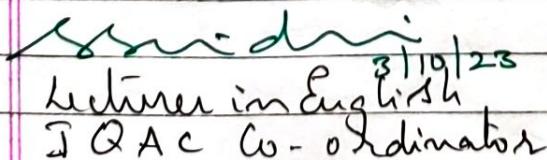 3/10/23
Lecturer in English
IQAC Co-ordinator